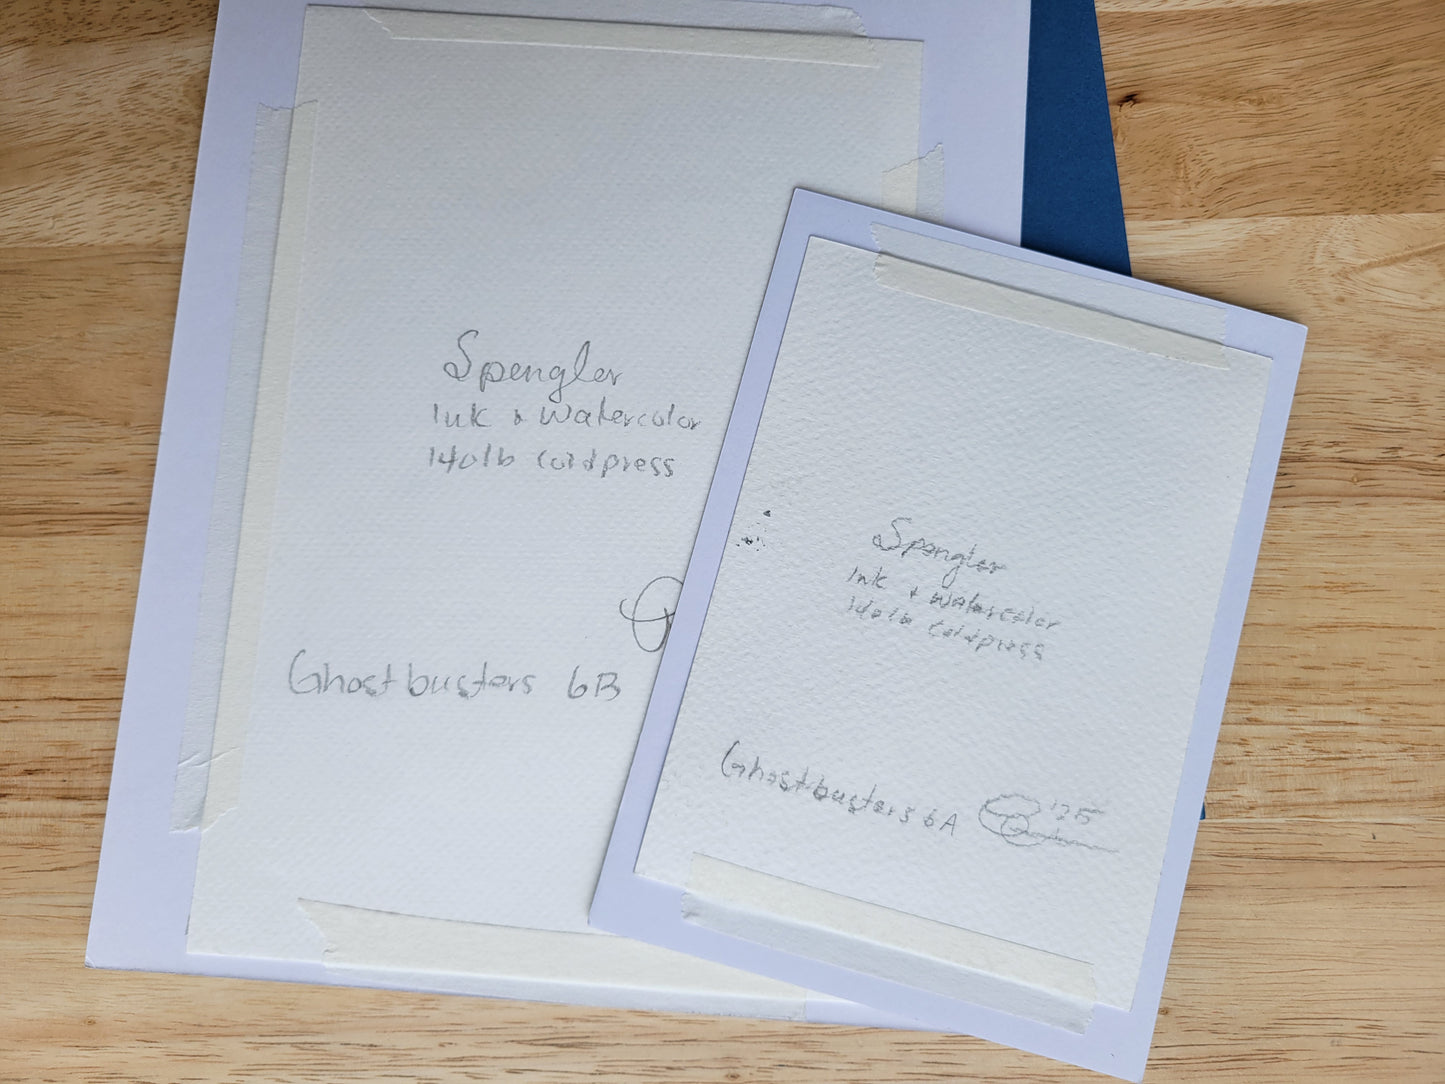 Spengler
Ink + Watercolor
140lb Coldpress
Ghostbusters 6B
Spengler
Ink + Watercolor
140lb Coldpress
Ghostbusters 6A
'25